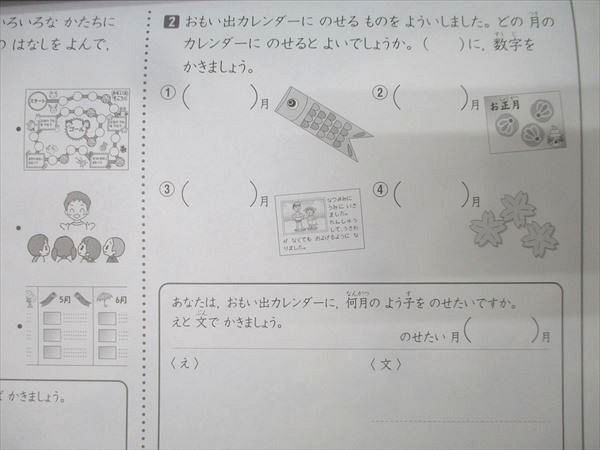 いろいろな かたちに
の はなしを よんで，
スタート
ゴール
5月
6月
ば かきましょう。
2 おもい出カレンダーに のせる ものを よういしました。どの 月の
カレンダーに のせると よいでしょうか。（　）に，数字を
かきましょう。
①（　）月
②（　）月
お正月
③（　）月
なつやみに
うみに いき
ました。
れんしゅう
して，うきわ
が なくても およげるように な
りました。
④（　）月
あなたは，おもい出カレンダーに，何月の よう子を のせたいですか。
えと 文で かきましょう。
のせたい 月（　）月
〈え〉
〈文〉